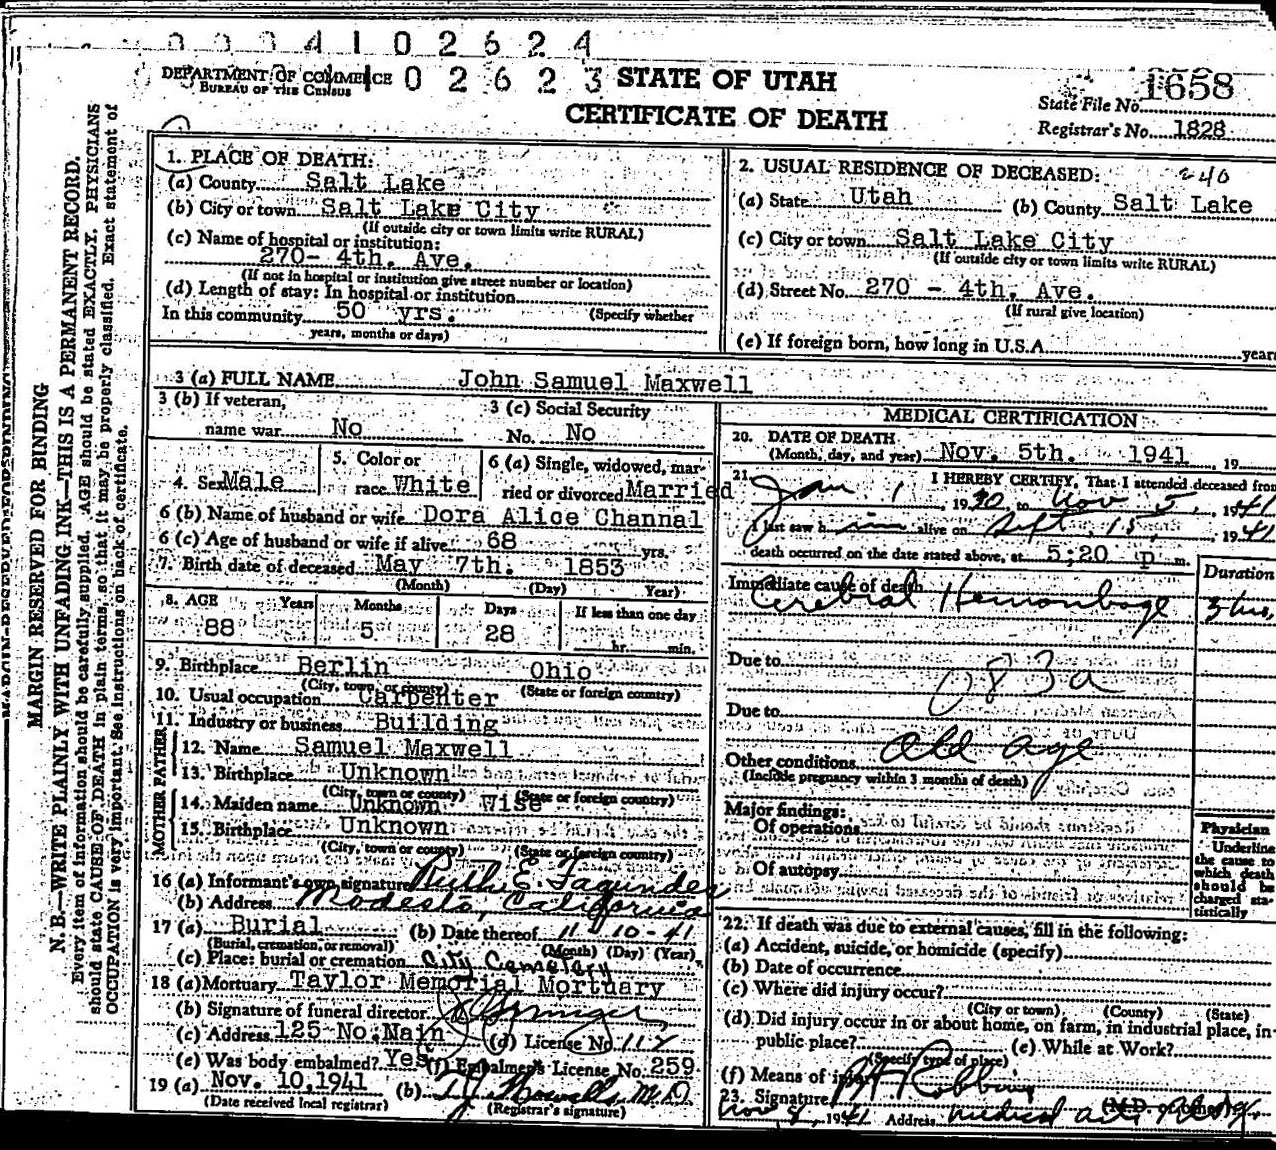 0 0 0 4 1 0 2 6 2 4
DEPARTMENT OF COMMERCE
BUREAU OF THE CENSUS
1 0 2 6 2 3
STATE OF UTAH
CERTIFICATE OF DEATH
State File No. 1658
Registrar's No. 1828
MARGIN RESERVED FOR BINDING
N. B.—WRITE PLAINLY WITH UNFADING INK—THIS IS A PERMANENT RECORD.
Every item of information should be carefully supplied. AGE should be stated EXACTLY. PHYSICIANS
should state CAUSE OF DEATH in plain terms, so that it may be properly classified. Exact statement of
OCCUPATION is very important. See instructions on back of certificate.
1. PLACE OF DEATH:
(a) County Salt Lake
(b) City or town Salt Lake City
(If outside city or town limits write RURAL)
(c) Name of hospital or institution:
270- 4th. Ave.
(If not in hospital or institution give street number or location)
(d) Length of stay: In hospital or institution
In this community 50 yrs. (Specify whether
years, months or days)
2. USUAL RESIDENCE OF DECEASED: 240
(a) State Utah (b) County Salt Lake
(c) City or town Salt Lake City
(If outside city or town limits write RURAL)
(d) Street No. 270 - 4th. Ave.
(If rural give location)
(e) If foreign born, how long in U.S.A. years
3 (a) FULL NAME John Samuel Maxwell
3 (b) If veteran, name war No
3 (c) Social Security No. No
4. Sex Male
5. Color or race White
6 (a) Single, widowed, married or divorced Married
6 (b) Name of husband or wife Dora Alice Channal
6 (c) Age of husband or wife if alive 68 yrs.
7. Birth date of deceased May 7th. 1853
(Month) (Day) Year)
8. AGE Years Months Days If less than one day
88 5 28 hr. min.
9. Birthplace Berlin Ohio
(City, town, or county) (State or foreign country)
10. Usual occupation Carpenter
11. Industry or business Building
FATHER
12. Name Samuel Maxwell
13. Birthplace Unknown
(City, town or county) (State or foreign country)
MOTHER
14. Maiden name Unknown Wise
15. Birthplace Unknown
(City, town or county) (State or foreign country)
16 (a) Informant's own signature Ruth E. Fagundes
(b) Address Modesto, California
17 (a) Burial (b) Date thereof 11-10-41
(Burial, cremation, or removal) (Month) (Day) (Year)
(c) Place: burial or cremation City Cemetery
18 (a) Mortuary Taylor Memorial Mortuary
(b) Signature of funeral director
(c) Address 125 No. Main (d) License No. 117
(e) Was body embalmed? Yes (f) Embalmer's License No. 259
19 (a) Nov. 10, 1941 (b) M.D.
(Date received local registrar) (Registrar's signature)
MEDICAL CERTIFICATION
20. DATE OF DEATH
(Month, day, and year) Nov. 5th. 1941, 19
21. I HEREBY CERTIFY, That I attended deceased from
Jan 1, 1930, to Nov 5, 1941
I last saw him alive on Sept. 15, 1941
death occurred on the date stated above, at 5;20 p m.
Immediate cause of death Duration
Cerebral Hemorrhage
Due to 083a
Due to
Other conditions Old Age
(Include pregnancy within 3 months of death)
Major findings:
Of operations
Of autopsy
Physician
Underline
the cause to
which death
should be
charged sta-
tistically
22. If death was due to external causes, fill in the following:
(a) Accident, suicide, or homicide (specify)
(b) Date of occurrence
(c) Where did injury occur?
(City or town) (County) (State)
(d) Did injury occur in or about home, on farm, in industrial place, in
public place? (e) While at Work?
(Specify type of place)
(f) Means of injury
23. Signature
Nov 8, 1941 Address Medical